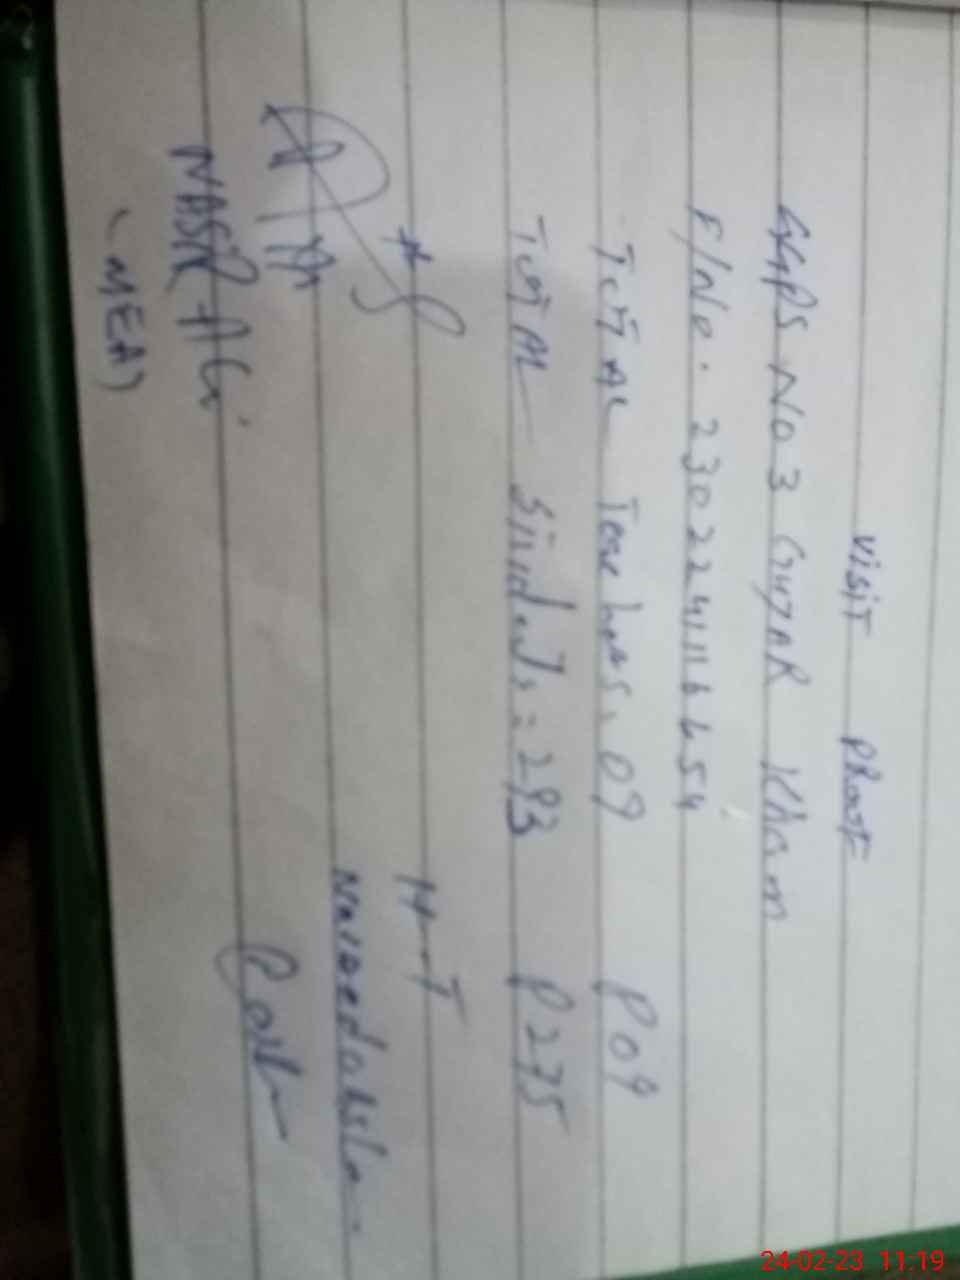 Visit Proof
GGPS No 3 Gujar Kham
F/No. 2302241116654
Total Teachers. 09 P 09
Total Students = 293 P 275
H-T
NASIR Ali
(MEA)
24-02-23 11:19